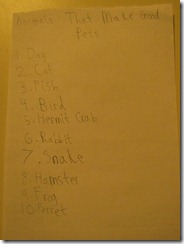 Animals That Make Good
Pets
1. Dog
2. Cat
3. Fish
4. Bird
5. Hermit Crab
6. Rabbit
7. Snake
8. Hamster
9. Frog
10. Ferret